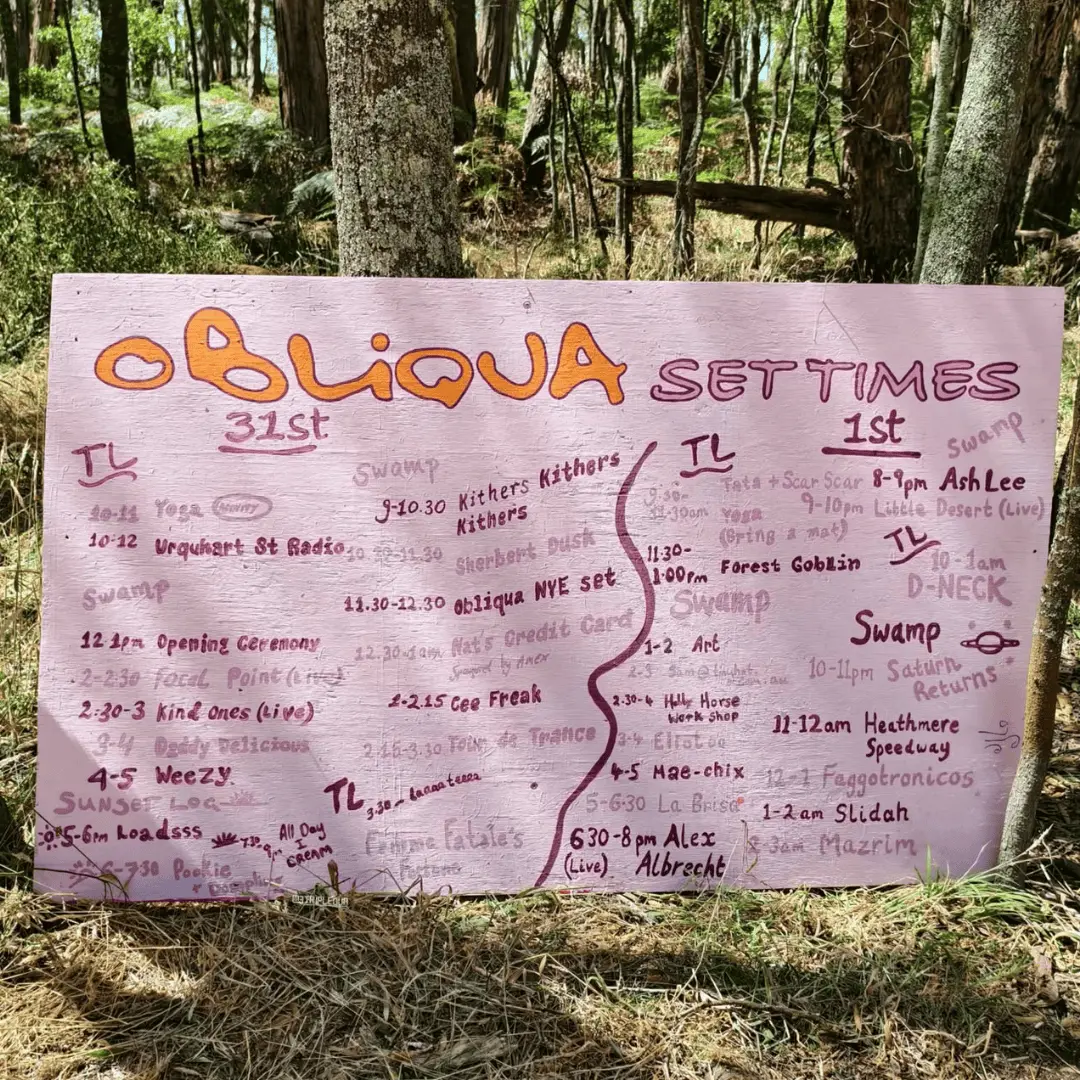 OBLIQUA SET TIMES
31st
TL
10-11 Yoga
10-12 Urquhart St Radio
Swamp
12-1pm Opening Ceremony
2-2:30 Focal Point (Live)
2:30-3 Kind Ones (Live)
3-4 Daddy Delicious
4-5 Weezy
SUNSET LOG
5-6pm Loadsss
6-7:30 Pookie
7:30-9pm All Day
I
CREAM
Swamp
9-10.30 Kithers Kithers
Kithers
10.30-11.30 Sherbert Dusk
11.30-12.30 Obliqua NYE set
12.30-1am Nat's Credit Card
Sponsored by Amex
1-2.15 Cee Freak
2.15-3.30 Tour de Trance
TL 3.30- Laaaateeee
Femme Fatale's
1st
TL
9:30-
11:30am
Tata + Scar Scar
Yoga
(Bring a mat)
11.30-
1:00pm Forest Goblin
Swamp
1-2 Art
2-3
2.30-4 Holly Horse
Work shop
3-4
4-5 Mae-chix
5-6:30 La Brisa
630-8pm Alex
(Live) Albrecht
Swamp
8-9pm Ash Lee
9-10pm Little Desert (Live)
TL
10-1am
D-NECK
Swamp
10-11pm Saturn
Returns
11-12am Heathmere
Speedway
12-1 Faggotronicos
1-2am Slidah
2-3am Mazrim